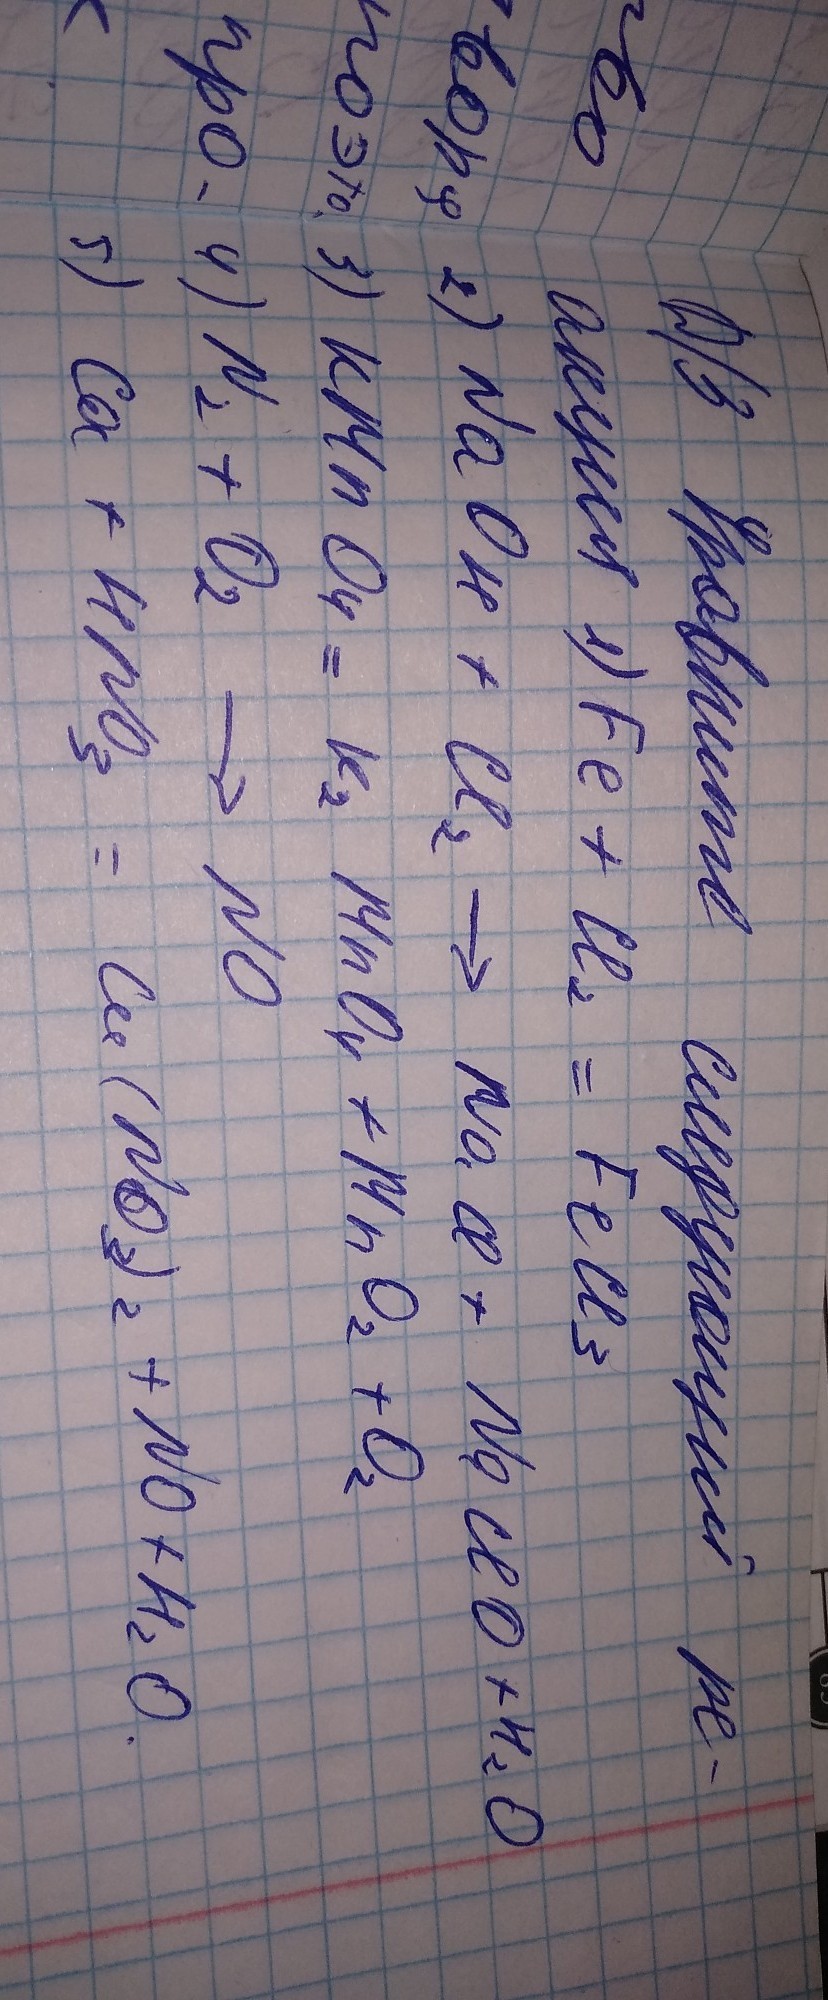 во
Д/З Уравните следующий ре-
акции 1) Fe + Cl₂ = FeCl₃
2) NaOH + Cl₂ → NaCl + NaClO + H₂O
3) KMnO₄ = K₂MnO₄ + MnO₂ + O₂
про- 4) N₂ + O₂ → NO
5) Ca + HNO₃ = Ca(NO₃)₂ + NO + H₂O.